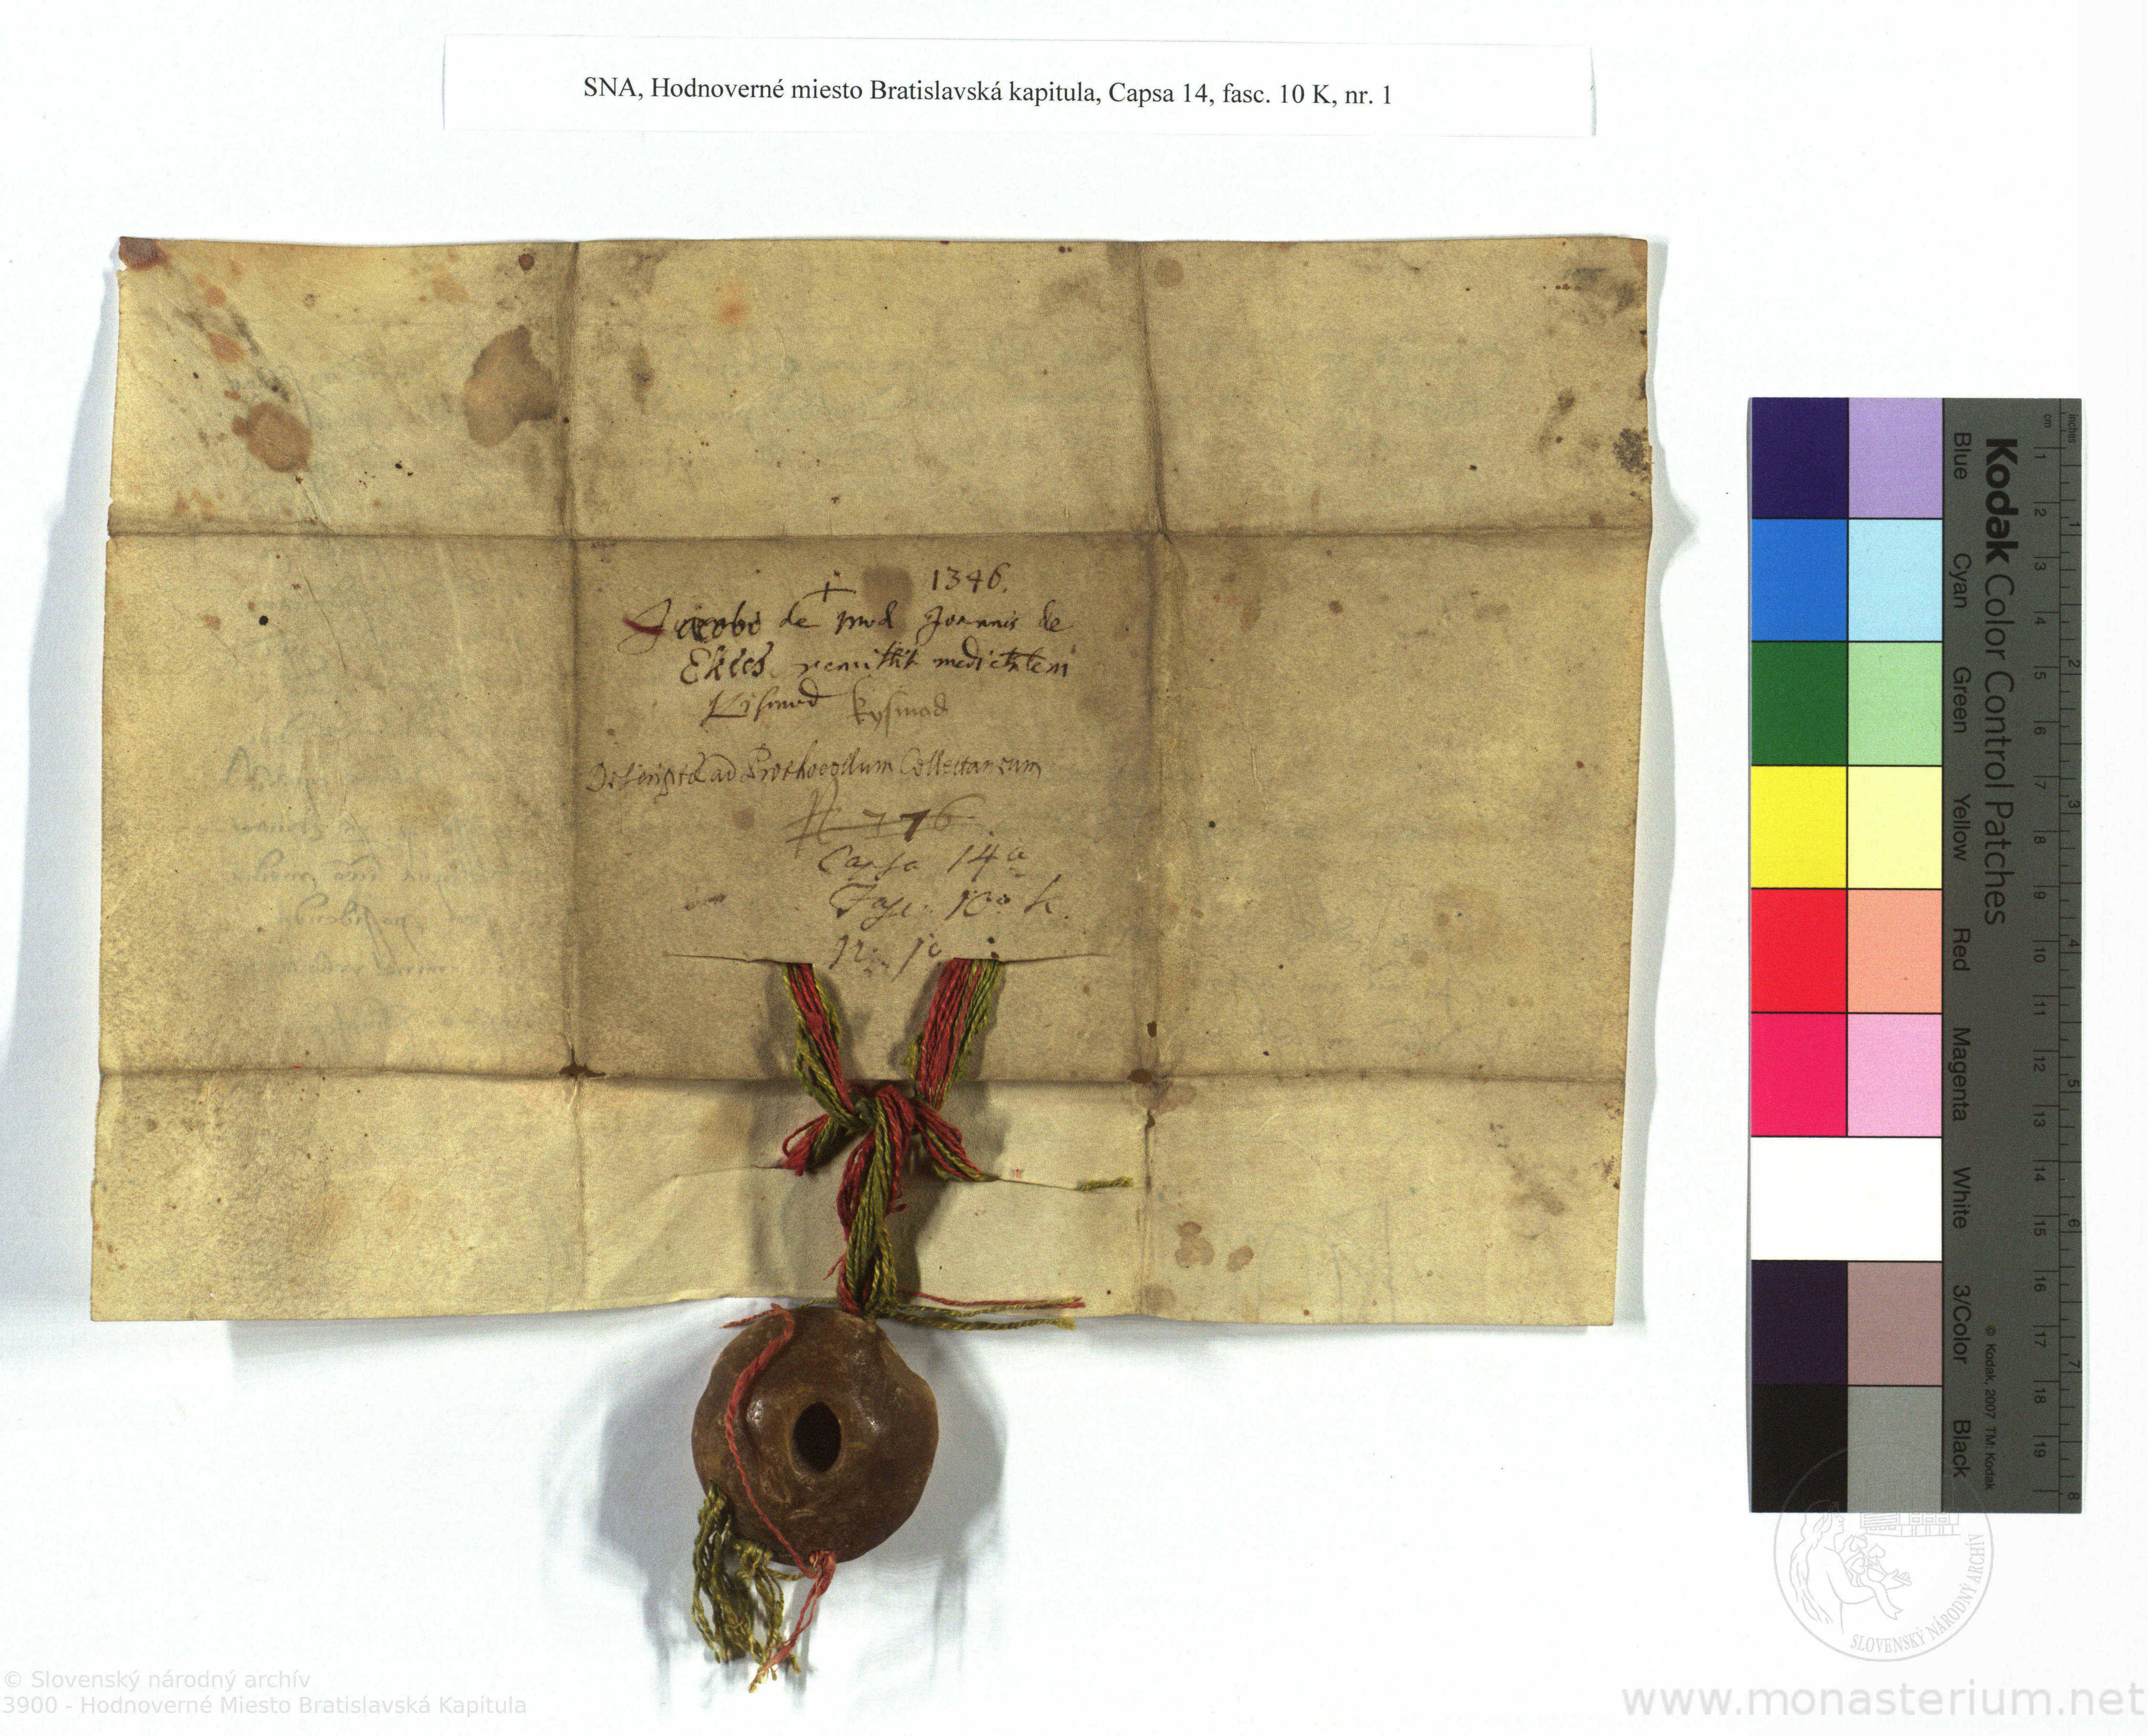 SNA, Hodnoverné miesto Bratislavská kapitula, Capsa 14, fasc. 10 K, nr. 1
1346.
Jacobo de mod Joannis de
remittit medietatem
Kismod kysmod
ad Prothocollum Collectaneum
776
Capsa 14a
Fasc. 10o K.
N. 1o
Kodak Color Control Patches
Blue Cyan Green Yellow Red Magenta White 3/Color Black
© Kodak, 2007 TM: Kodak
cm 1 2 3 4 5 6 7 8 9 10 11 12 13 14 15 16 17 18 19
inches 1 2 3 4 5 6 7 8
SLOVENSKÝ NÁRODNÝ ARCHÍV
© Slovenský národný archív
3900 - Hodnoverné Miesto Bratislavská Kapitula
www.monasterium.net